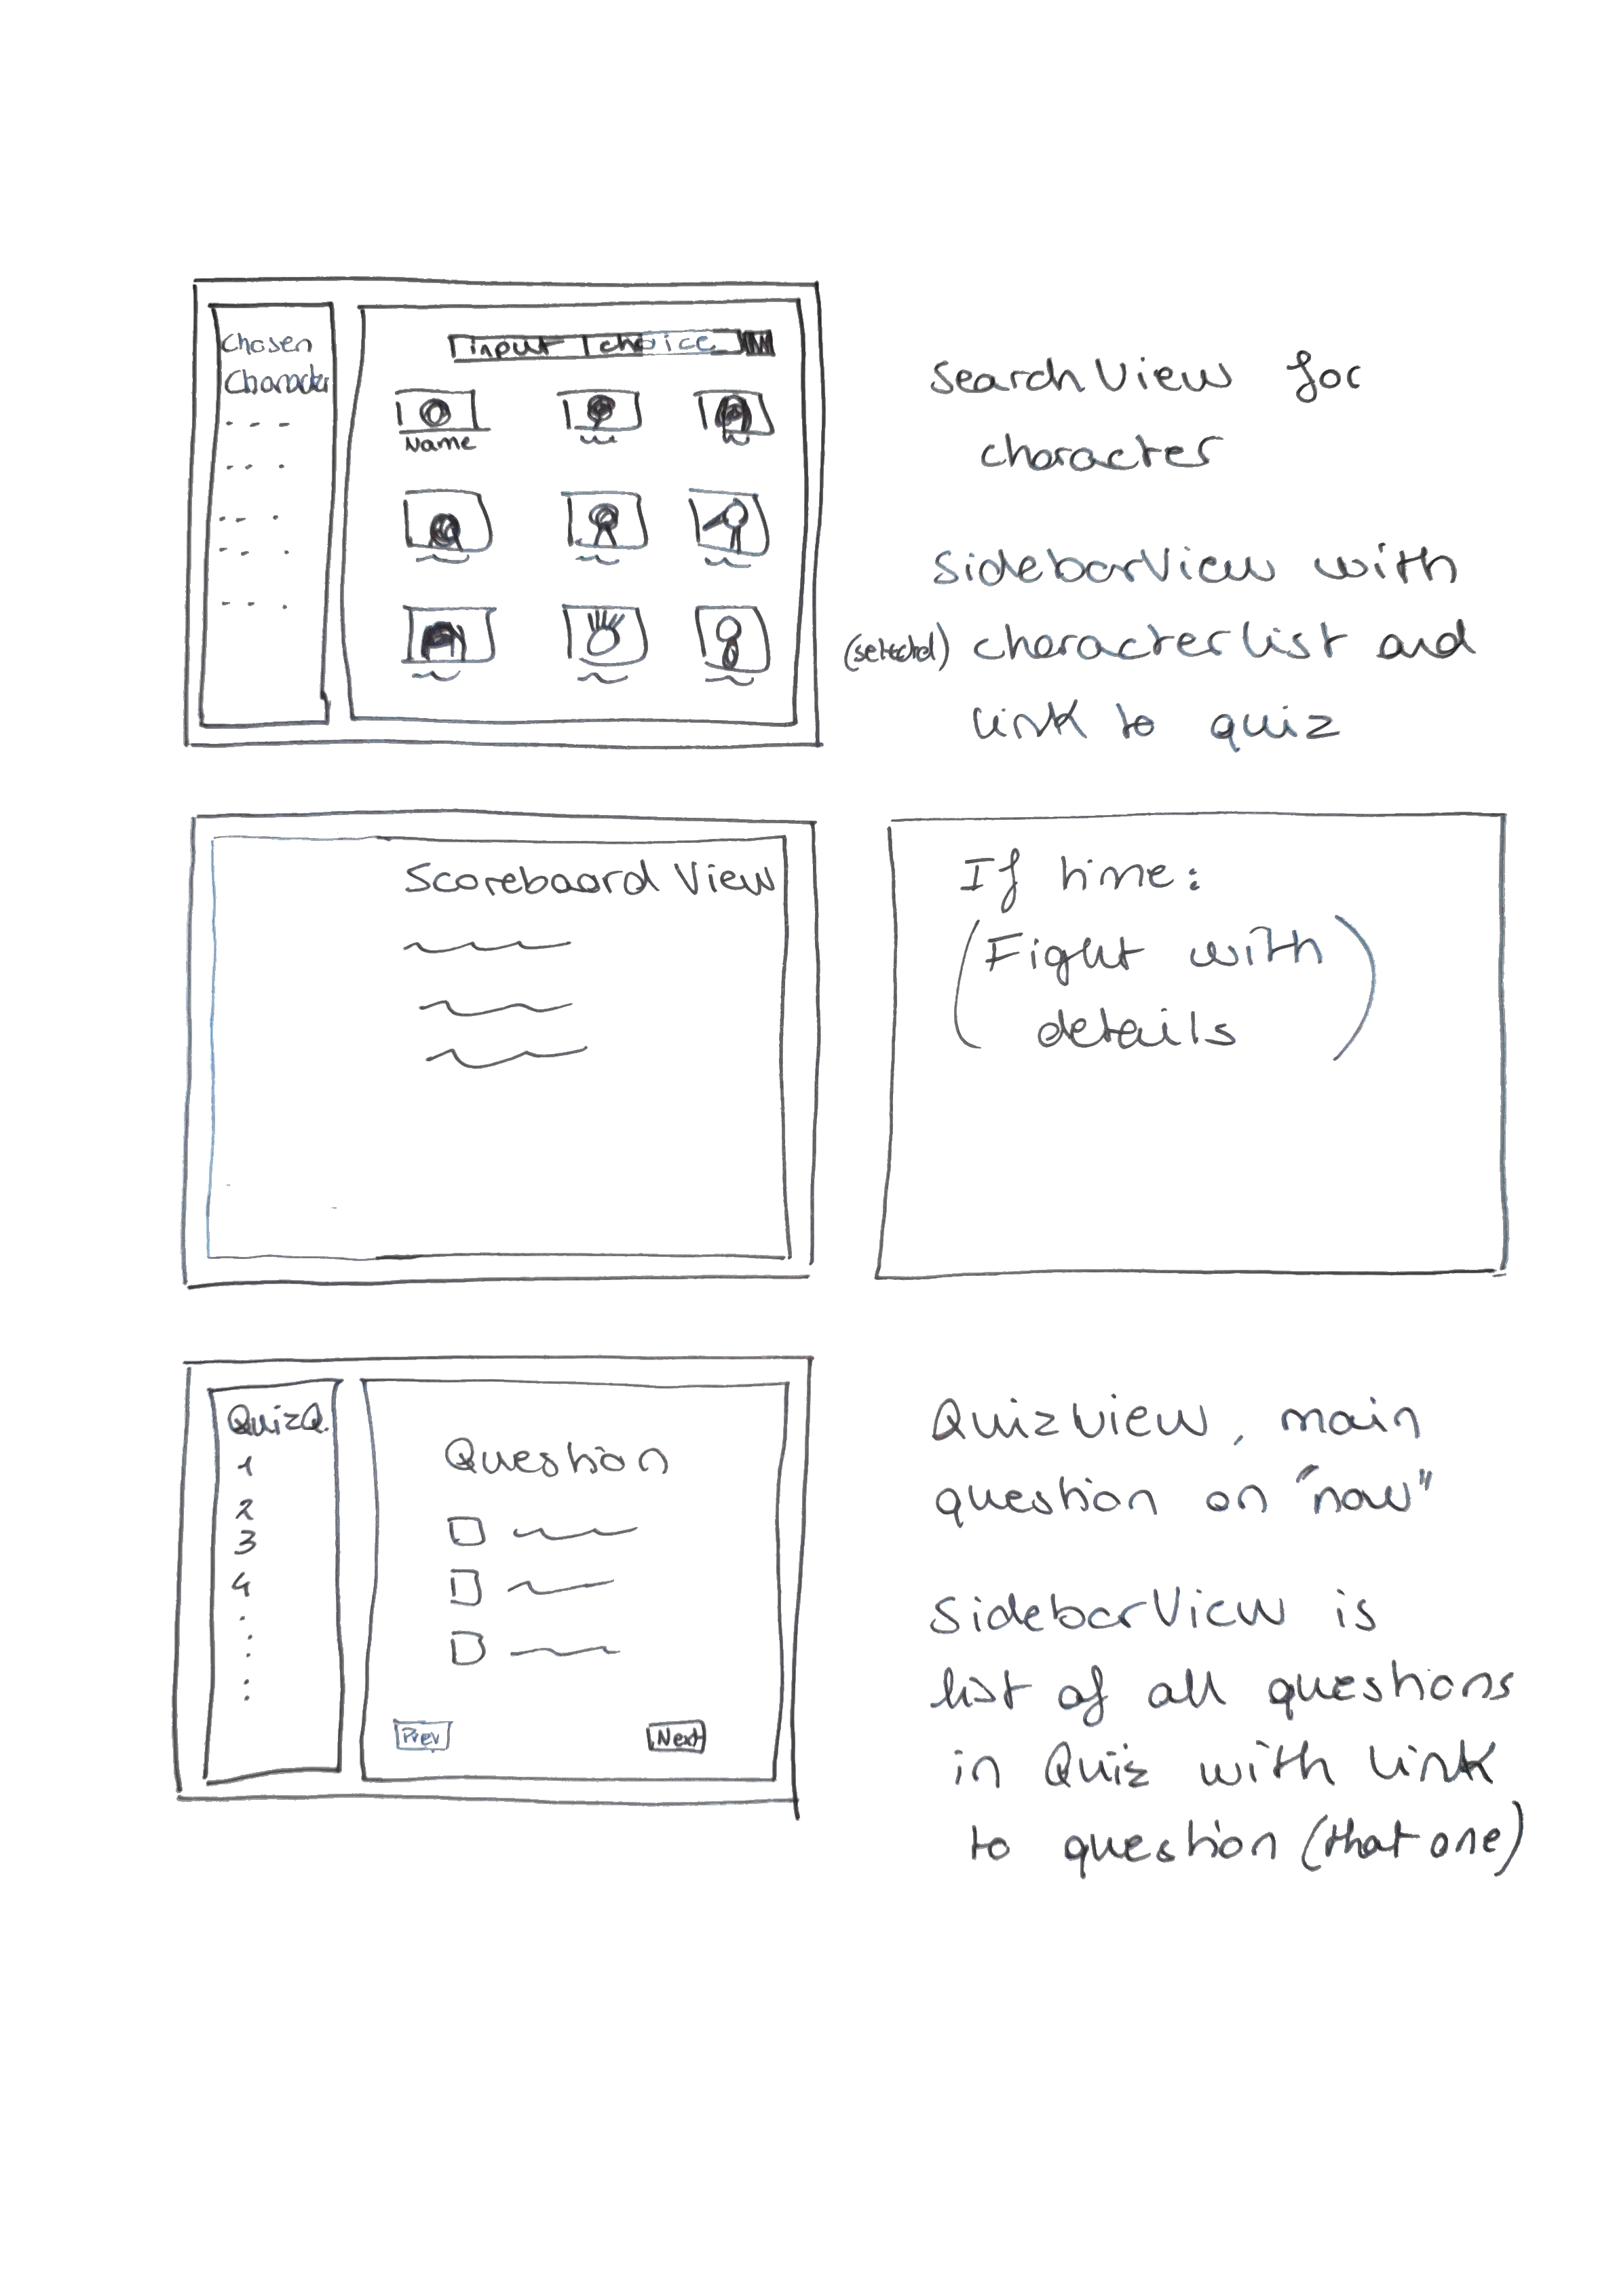 Chosen
Character
input choice
Name
searchView for
character
SidebarView with
(selected) characterlist and
link to quiz
Scoreboard View
If time:
(Fight with
details)
QuizQ.
1
2
3
4
Question
Prev
Next
QuizView, main
question on "now"
SidebarView is
list of all questions
in Quiz with link
to question (that one)